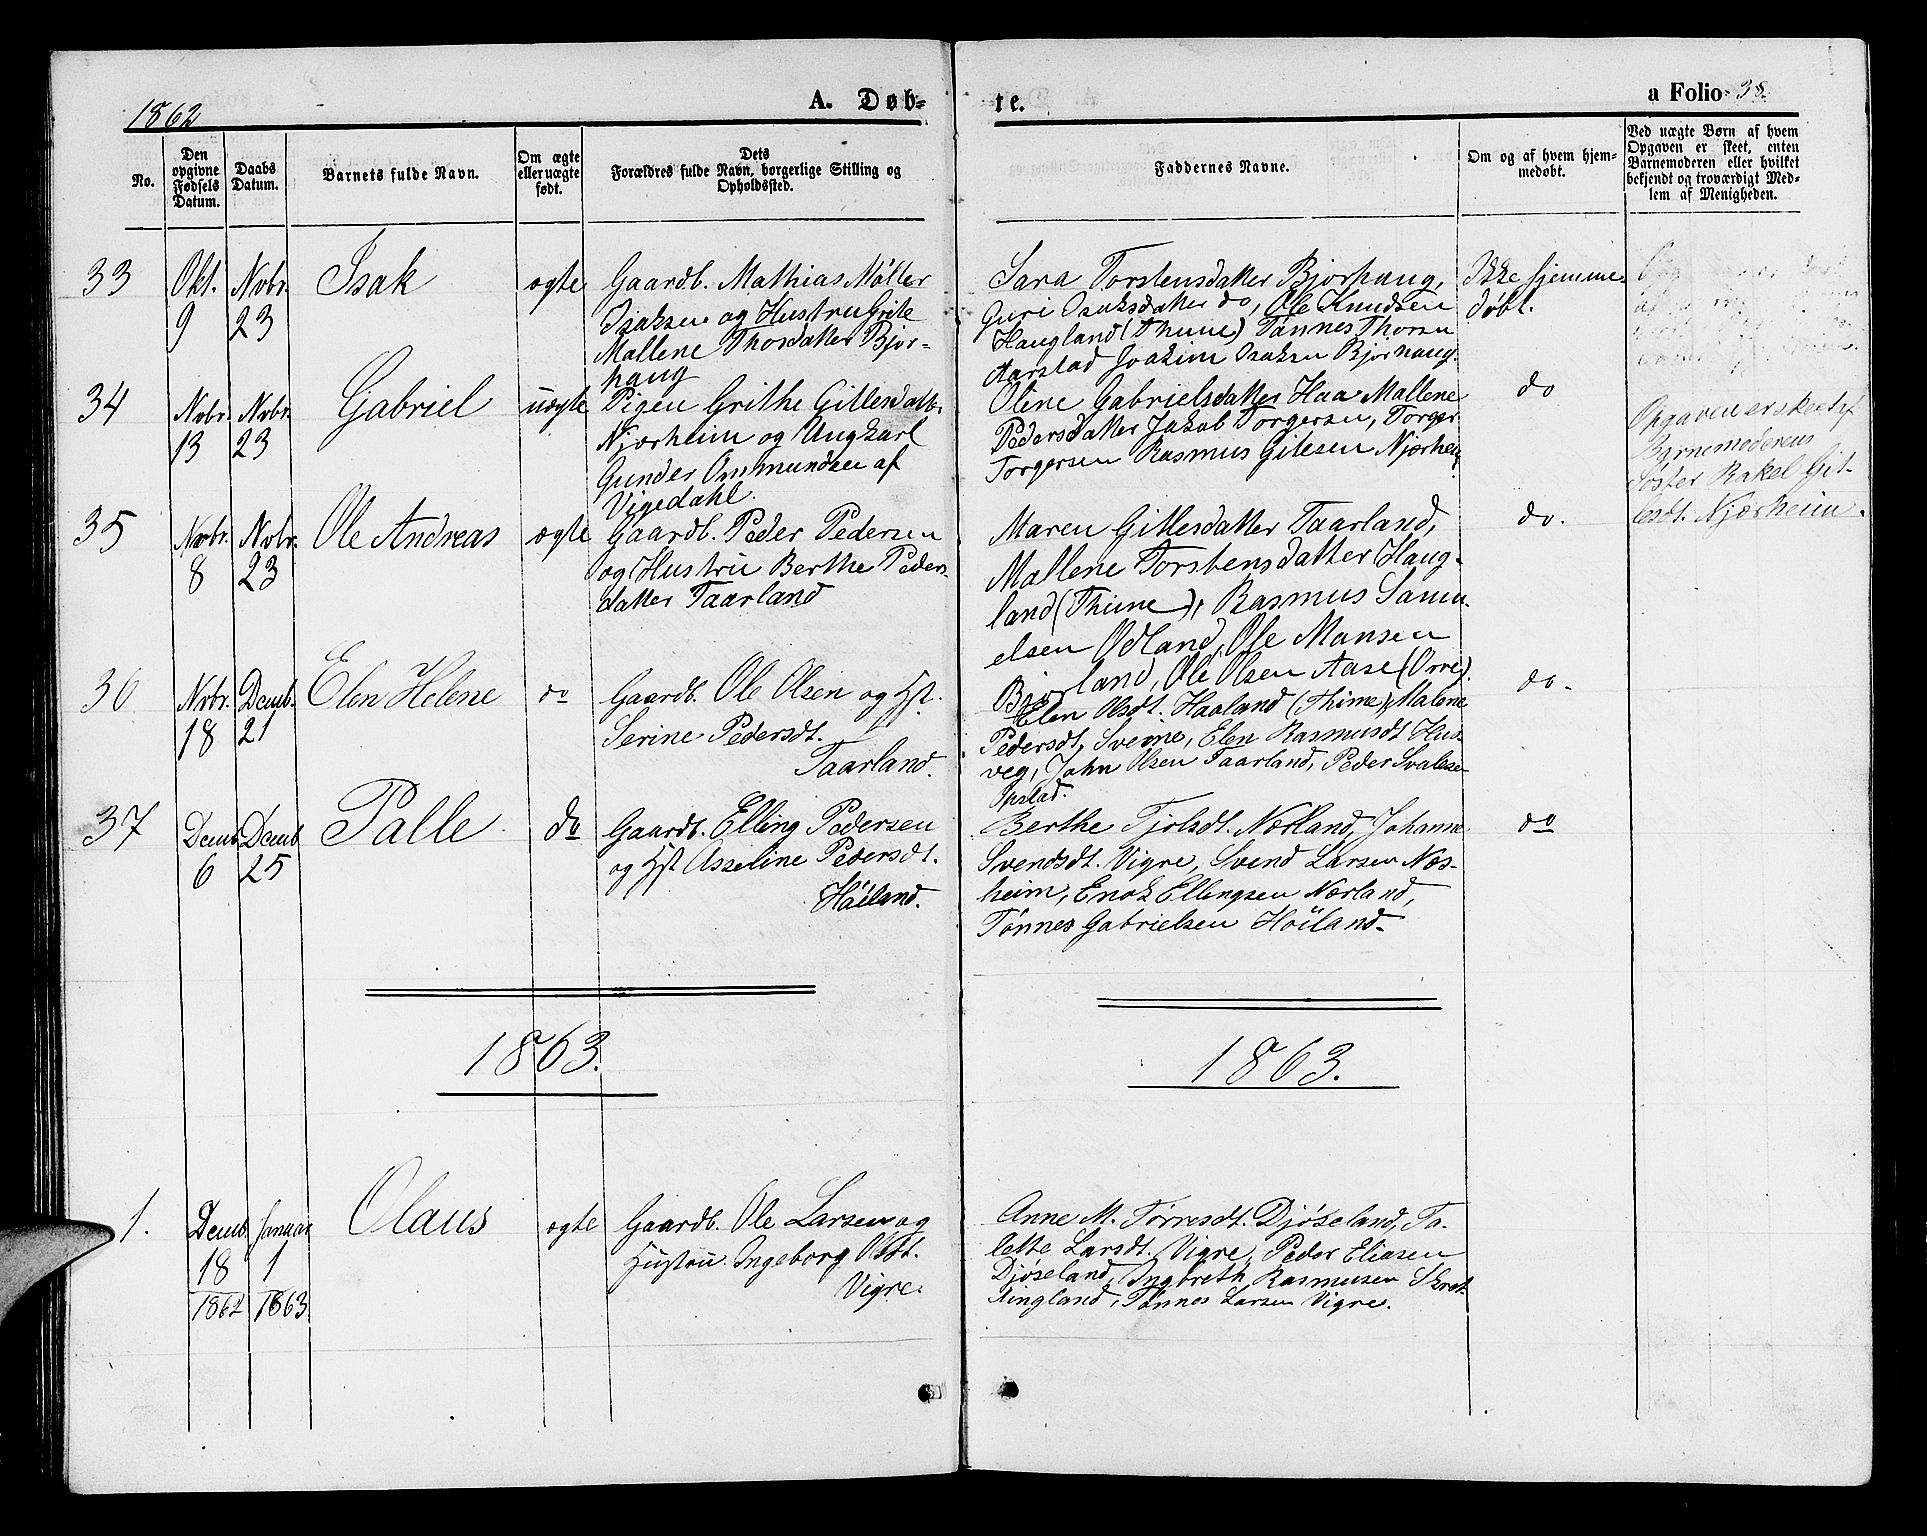 1862
A. Døb-
te.
a Folio 38.
No.
Den opgivne Fødsels Datum.
Daabs Datum.
Barnets fulde Navn.
Om ægte eller uægte født.
Dets Forældres fulde Navn, borgerlige Stilling og Opholdssted.
Faddernes Navne.
Om og af hvem hjem-
medøbt.
Ved uægte Børn af hvem
Opgaven er skeet, enten
Barnemoderen eller hvilket
bekjendt og troværdigt Med-
lem af Menigheden.
33 Okt. 9 Nvbr. 23 Isak ægte
Gaardb. Mathias Møller
Isaksen og Hustru Grite
Mallene Thorsdatter Bjor-
haug
Sara Torstensdatter Bjorhaug,
Guri Isaksdatter do, Ole Knudsen
Haugland (Thime) Tønnes Thorsn
Aarstad Joakim Isaksn Bjorhaug.
Ikke hjemme-
døbt.
34 Nvbr. 13 Nvbr. 23 Gabriel uægte
Pigen Grithe Gillesdattr
Njærheim og Ungkarl
Gunder Ommundsen af
Vigedahl.
Oline Gabrielsdatter Haa Mallene
Pedersdatter Jakob Torgersn, Torger
Torgersen Rasmus Gilesen Njærheim
do
Opgaven er skeet af
Barnemoderens
Søster Rakel Gil-
lesdt. Njærheim.
35 Nvbr. 8 Nvbr. 23 Ole Andreas ægte
Gaardb. Peder Pedersen
og Hustru Berthe Peders-
datter Taarland
Maren Gillesdatter Taarland,
Mallene Torstensdatter Haug-
land (Thime), Rasmus Samu-
elsen Odland, Ole Monsen
Bjorland, Ole Olsen Aase (Orre).
do.
36 Nvbr. 18 Decmb. 21 Elen Helene do
Gaardb. Ole Olsen og Hst.
Serine Pedersdt.
Taarland.
Elen Olsdt. Haaland (Thime), Malene
Pedersdt, Sveine, Elen Rasmusdt Hus-
veg, John Olsen Taarland, Peder Svalesen
Opstad.
do.
37 Decmb 6 Decmb 25 Palle do
Gaardb. Elling Pedersen
og Hst Asseline Pedersdt.
Høiland.
Berthe Tjølsdt. Nærland, Johanne
Svendsdt. Vigre, Svend Larsen Næs-
heim, Enok Ellingsen Nærland,
Tønnes Gabrielsen Høiland.
do
1863.
1863.
1. Decmb. 18 1862 Januar 1 1863 Olaus ægte
Gaardb. Ole Larsen og
Hustru. Ingeborg Olsdt.
Vigre.
Anne M. Tørresdt. Djøseland, Ta-
lette Larsdt. Vigre, Peder Eliasen
Djøseland, Ingbreth Rasmusen Skret-
tingland, Tønnes Larsen Vigre.